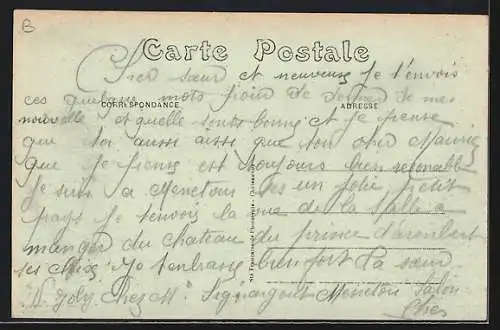 B
Carte Postale
Cher sœur et neuveux je t'envois
ces quelque mots pour te donner de mes
CORRESPONDANCE ADRESSE
nouvelle et quelle sont bonne et je pense
que toi aussi ainsi que ton cher Maurice
que je pense est toujours bien resonable
Je suis a Menetou c'est un jolie petit
pays je t'envois la vue de la salle a
manger du chateau du prince d'arenbert
Je t'enbrasse bien fort ta sœur
Joly Chez M. Menetou Salon
Cher